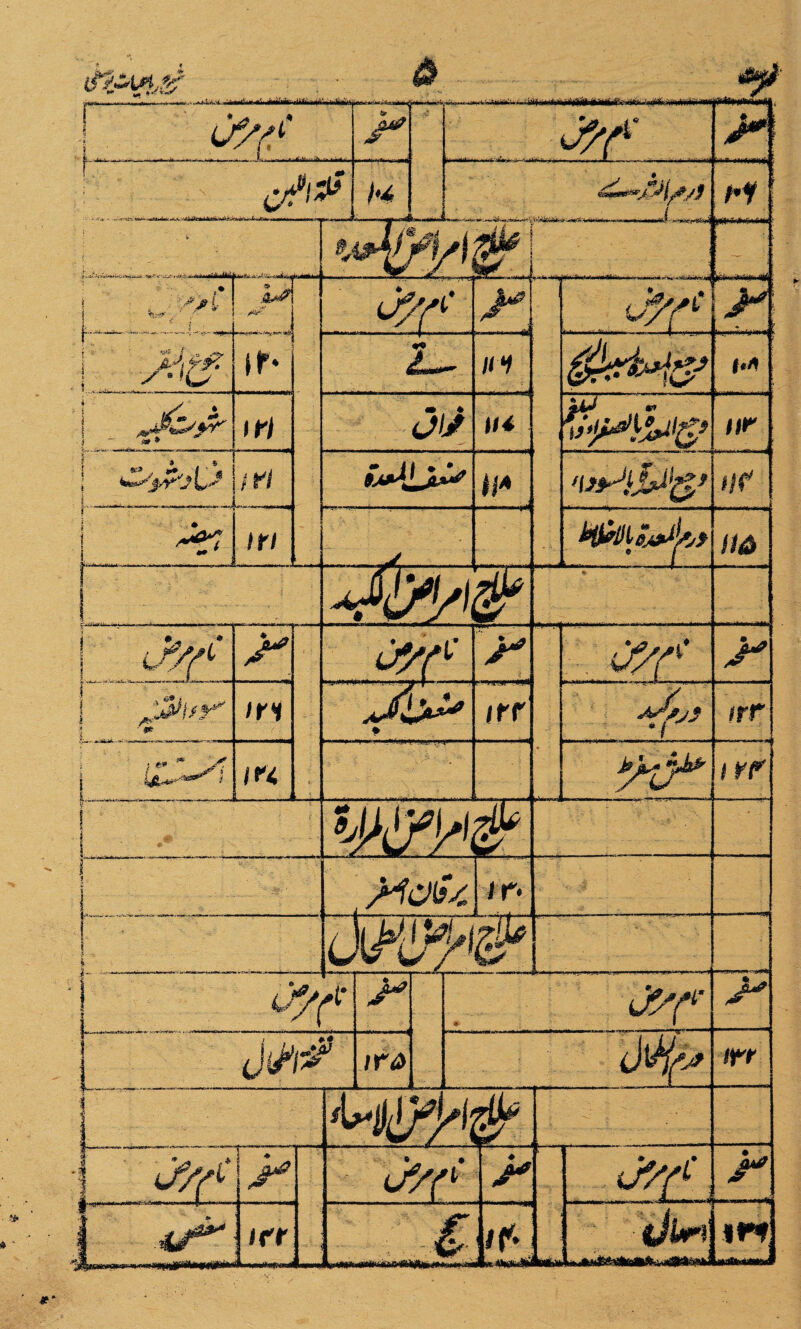 فہرست ۵
صفحہ نام مرض صفحہ نام مرض
۱۰۶ ورم الثدی ۱۰۷ قلۃ اللبن
علاج امراض المعدہ
صفحہ نام مرض صفحہ نام مرض صفحہ نام مرض
۱۰۸ وجع المعدۃ بسبب الریح ۱۱۶ قے ۱۲۰ جوع البقر
۱۱۳ وجع المعدۃ بالصفراء والبلغم ۱۱۷ فواق ۱۲۱ شہوت کلبیہ
۱۱۴ وجع المعدۃ بالسوداء ۱۱۸ ضعف المعدۃ ۱۲۱ فساد شہوت
۱۱۵ ورم المعدۃ بالاخلاط ۱۲۱ ہیضہ
علاج امراض الکبد
صفحہ نام مرض صفحہ نام مرض صفحہ نام مرض
۱۲۳ ورم کبد ۱۲۴ ضعف الکبد ۱۲۶ سوء القنیہ
۱۲۴ عطش مفرط ۱۲۷ استسقا
علاج امراض المرارۃ
۱۳۰ یرقان اصفر
علاج امراض الطحال
صفحہ نام مرض صفحہ نام مرض
۱۳۲ ورم الطحال ۱۳۵ نفخۃ الطحال
علاج امراض الامعاء
صفحہ نام مرض صفحہ نام مرض صفحہ نام مرض
۱۳۶ اسہال ۱۴۰ سحج ۱۴۲ مغص